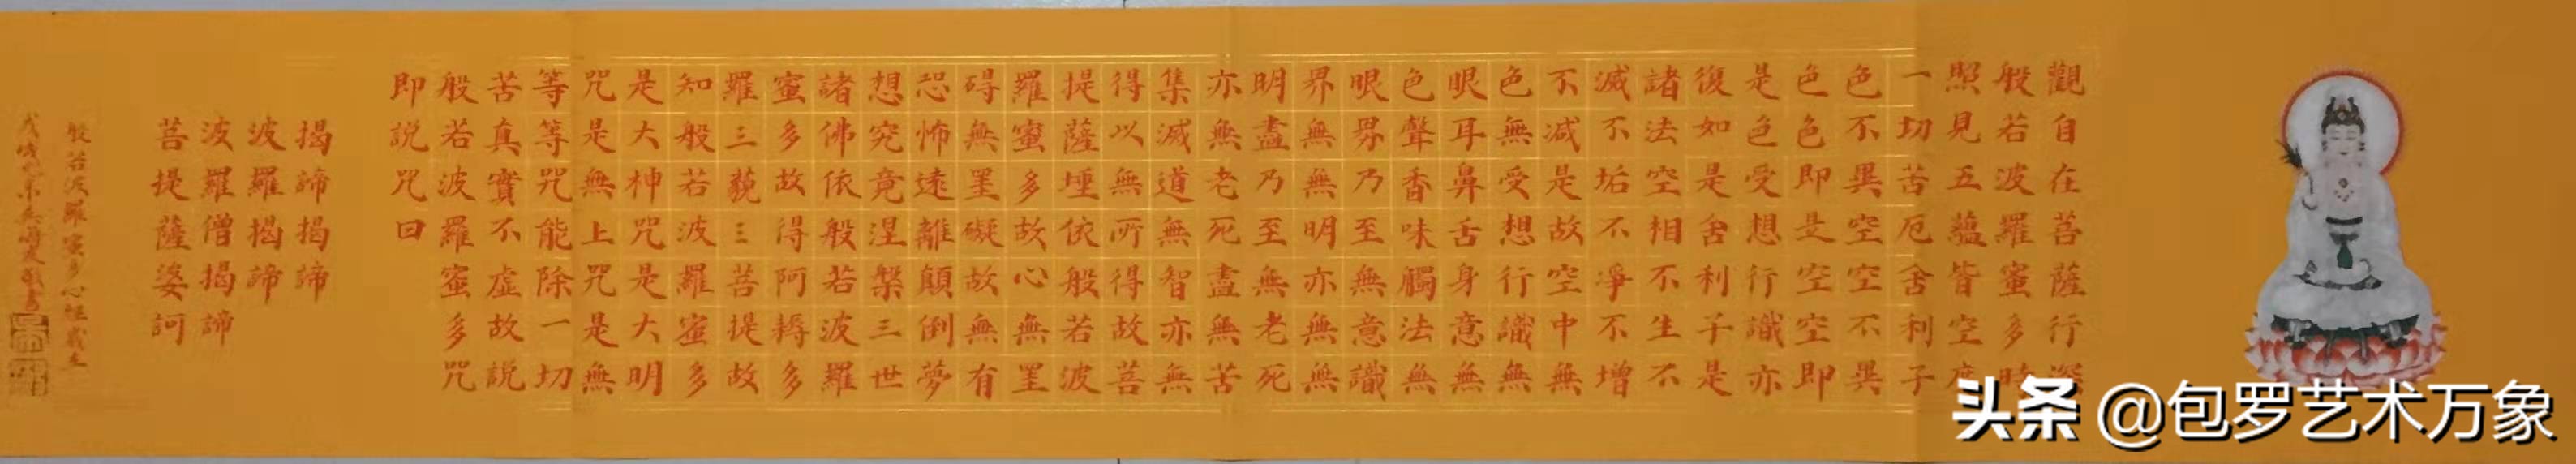 觀自在菩薩行深
般若波羅蜜多時
照見五蘊皆空度
一切苦厄舍利子
色不異空空不異
色色即是空空即
是色受想行識亦
復如是舍利子是
諸法空相不生不
滅不垢不淨不增
不减是故空中無
色無受想行識無
眼耳鼻舌身意無
色聲香味觸法無
眼界乃至無意識
界無無明亦無無
明盡乃至無老死
亦無老死盡無苦
集滅道無智亦無
得以無所得故菩
提薩埵依般若波
羅蜜多故心無罣
碍無罣礙故無有
恐怖遠離顛倒夢
想究竟涅槃三世
諸佛依般若波羅
蜜多故得阿耨多
羅三藐三菩提故
知般若波羅蜜多
是大神咒是大明
咒是無上咒是無
等等咒能除一切
苦真實不虛故説
般若波羅蜜多咒
即説咒曰
揭諦揭諦
波羅揭諦
波羅僧揭諦
菩提薩婆訶
般若波羅蜜多心經歲在
戊戌敬書
头条 @包罗艺术万象